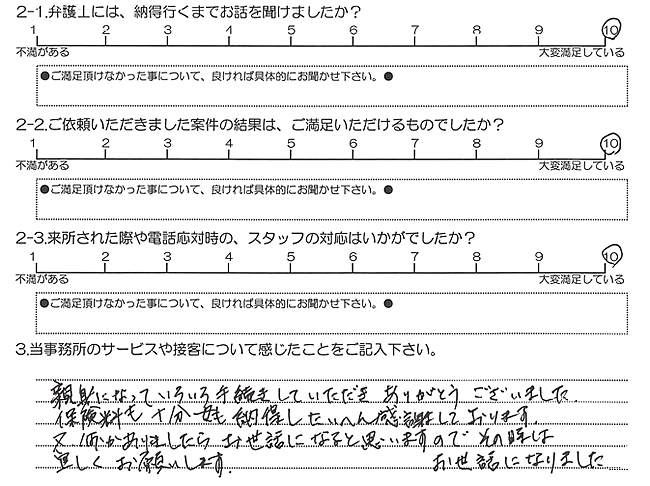 2-1.弁護士には、納得行くまでお話を聞けましたか?
1 2 3 4 5 6 7 8 9 10
不満がある 大変満足している
●ご満足頂けなかった事について、良ければ具体的にお聞かせ下さい。●
2-2.ご依頼いただきました案件の結果は、ご満足いただけるものでしたか?
1 2 3 4 5 6 7 8 9 10
不満がある 大変満足している
●ご満足頂けなかった事について、良ければ具体的にお聞かせ下さい。●
2-3.来所された際や電話応対時の、スタッフの対応はいかがでしたか?
1 2 3 4 5 6 7 8 9 10
不満がある 大変満足している
●ご満足頂けなかった事について、良ければ具体的にお聞かせ下さい。●
3.当事務所のサービスや接客について感じたことをご記入下さい。
親身になっていろいろ手続きしていただき ありがとう ございました.
保険料も 十分 納得したいへん感謝しております.
又 何かありましたら お世話になると思いますので その時は
宜しく お願いします. お世話になりました